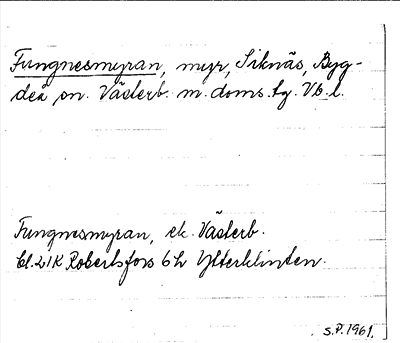 Fungnesmyran, myr, Siknäs, Byg-
deå sn. Västerb. m. doms.fg. Vb. l.
Fungnesmyran, ek. Västerb.
bl. 21K Robertsfors 6 h Ytterklinten.
S.P. 1961.